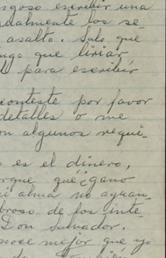 sgoso escribir una
ndalmente los se
asalto. Solo que
ngo que
para escribir
conteste por favor
detalles o me
on algunos requi-
es el dinero,
rque qué gano
i alma no
broso de los inte
Don Salvador.
noce mejor que yo